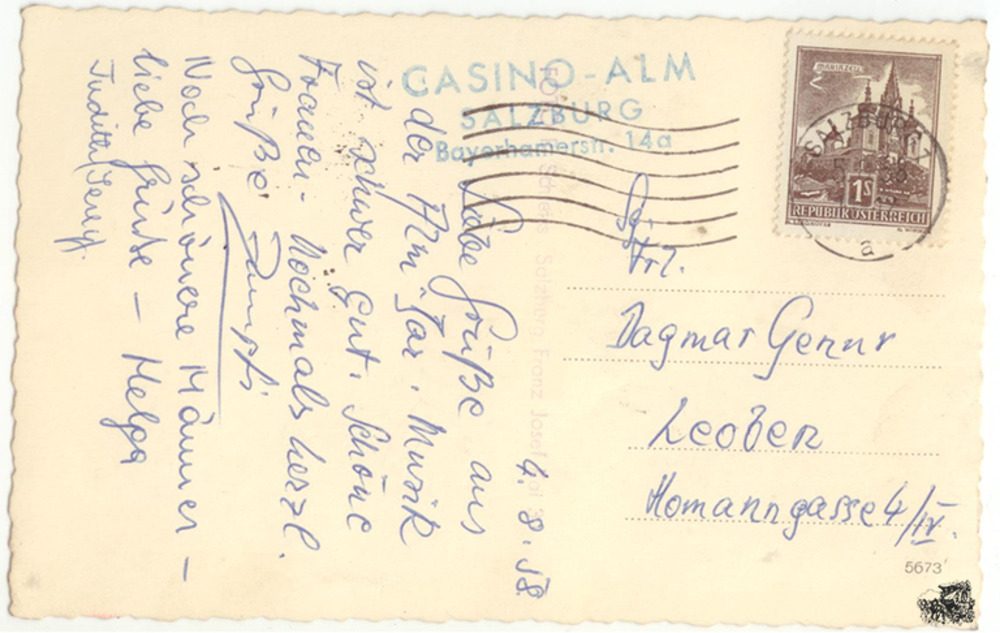 CASINO-ALM
SALZBURG
Bayerhamerstr. 14a
MARIAZELL
1S
REPUBLIK ÖSTERREICH
SALZBURG
a
4. 8. 58
Liebe Grüße aus
der Alm-Bar. Musik
ist schwer gut. Schöne
Frauen. Nochmals herzl.
Grüße
Noch schönere Männer –
liebe Grüße – Helga
Judith
Frl.
Dagmar
Leoben
Homanngasse 4/IV.
5673
Salzburg Franz Josef